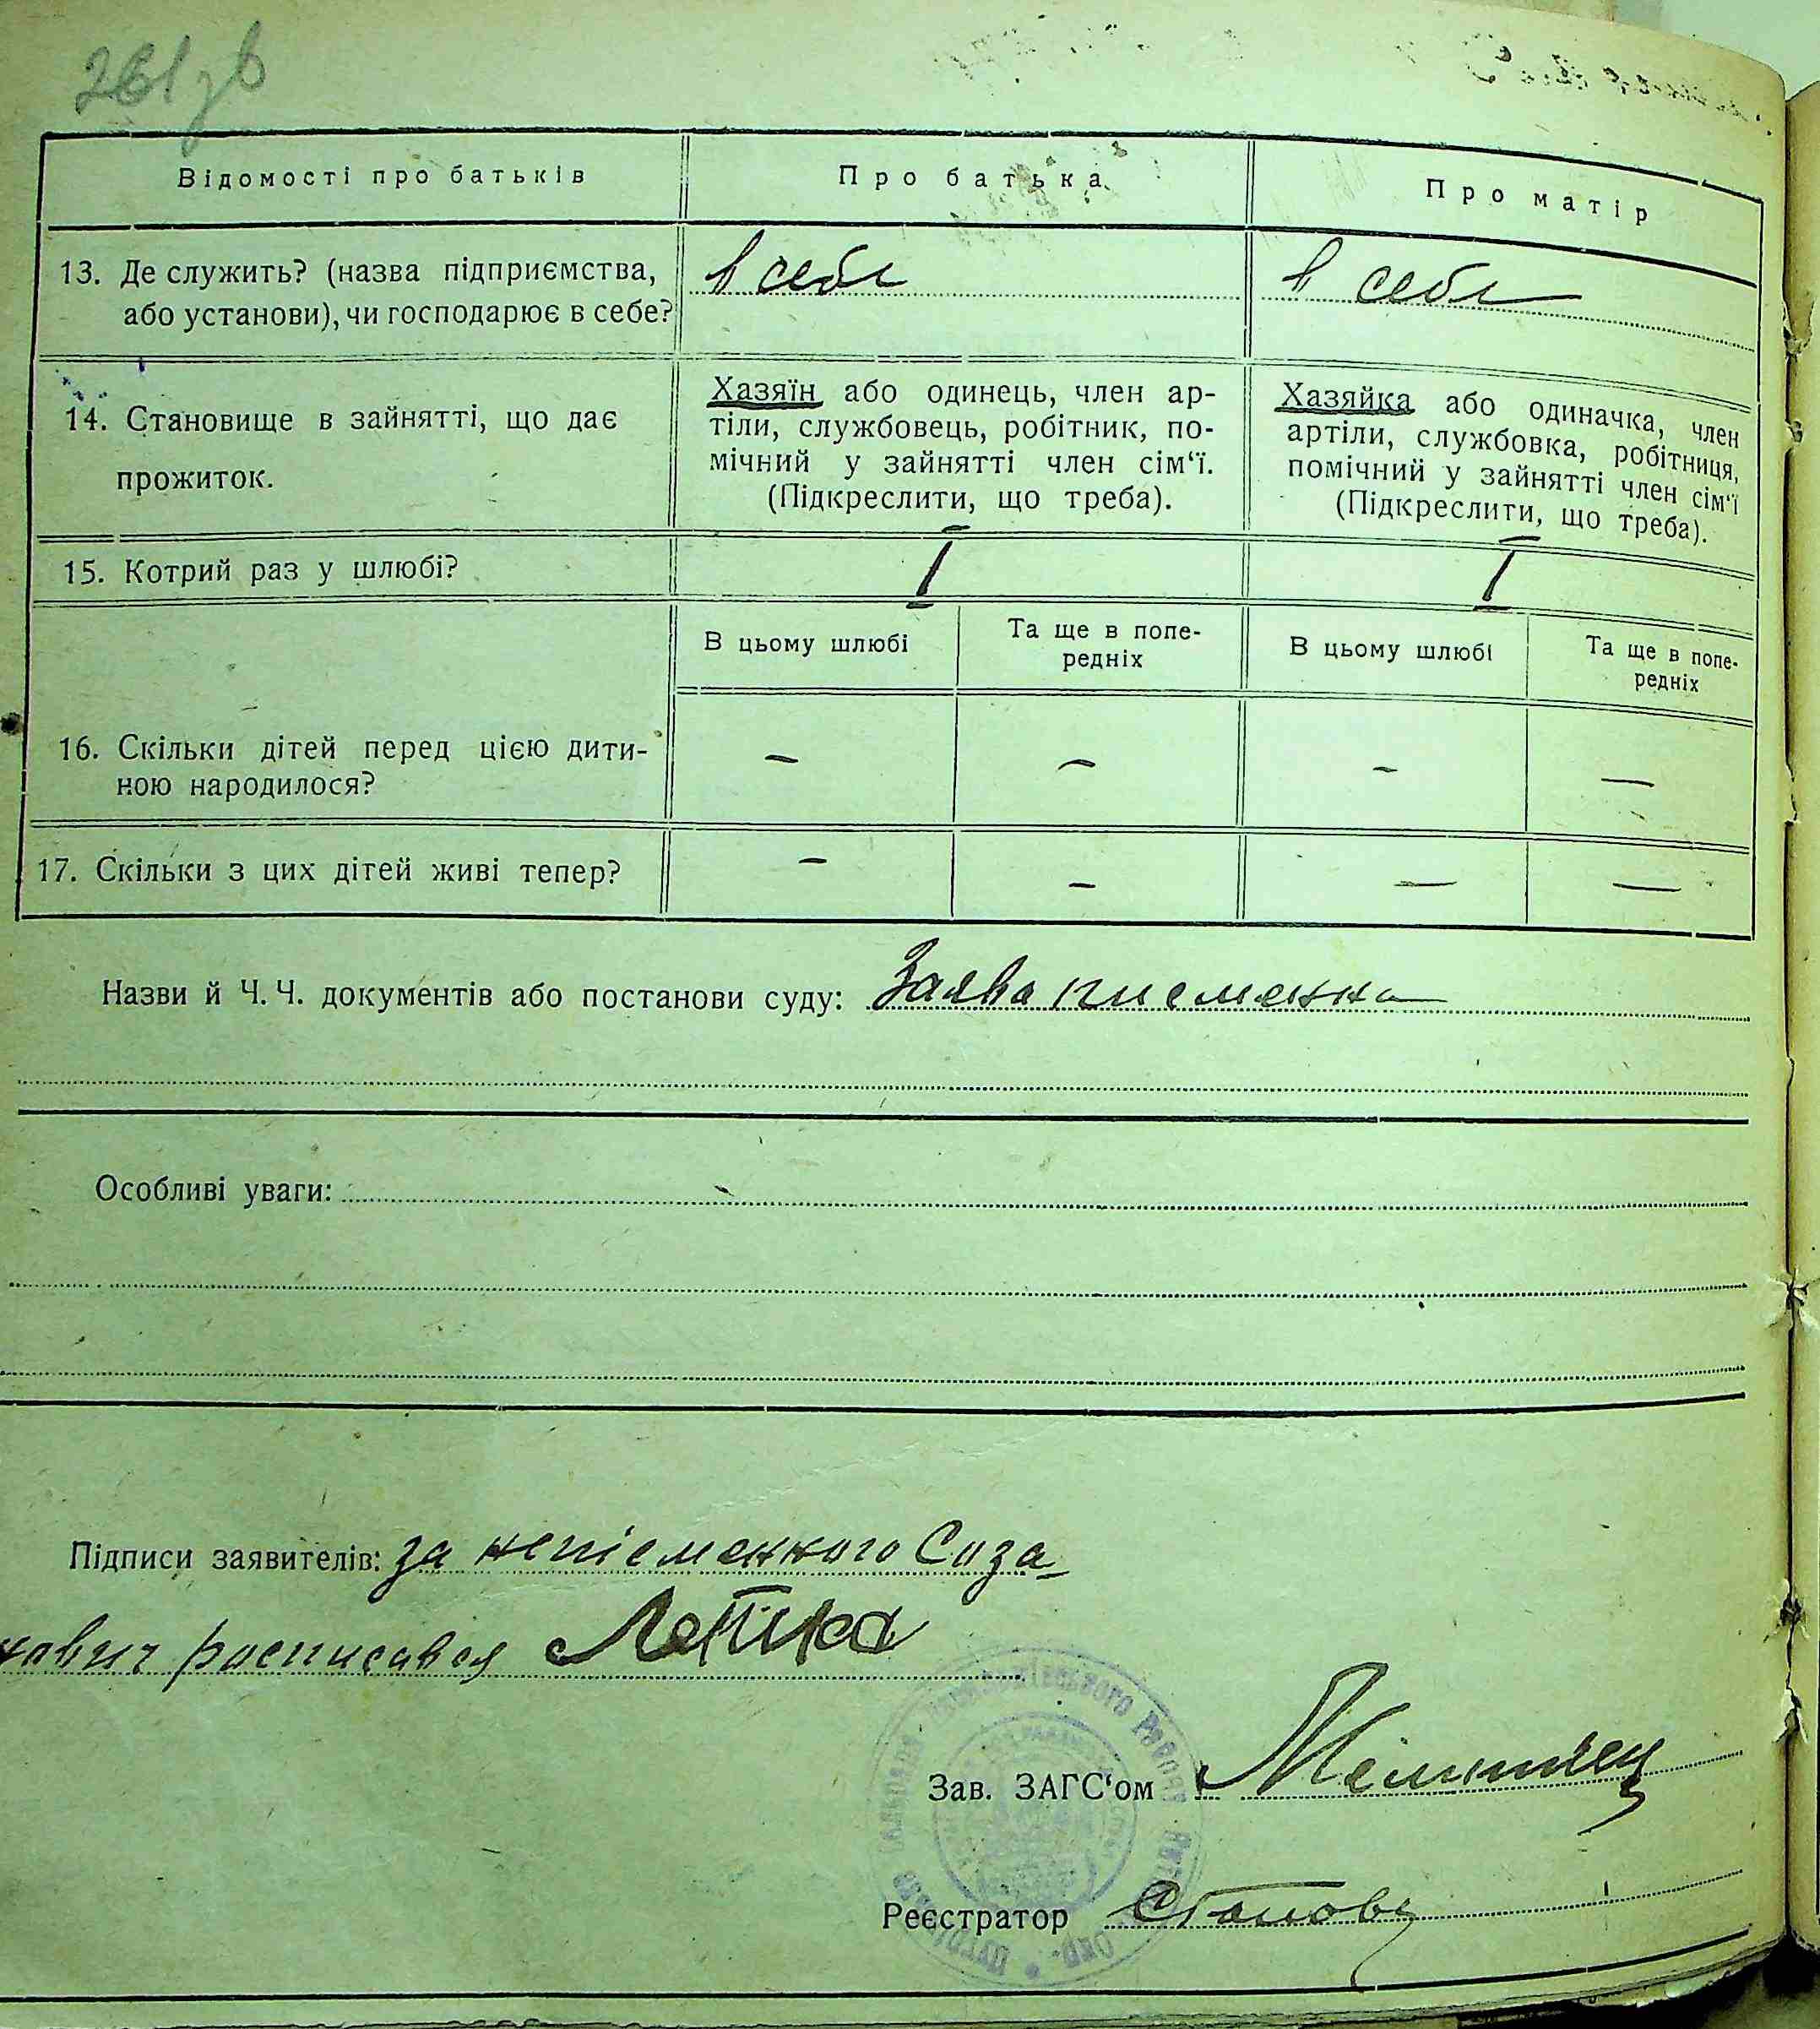 261 зв
Відомості про батьків
Про батька
Про матір
13. Де служить? (назва підприємства,
або установи), чи господарює в себе?
в себе
в себе
14. Становище в зайнятті, що дає
прожиток.
Хазяїн або одинець, член ар-
тіли, службовець, робітник, по-
мічний у зайнятті член сім‘ї.
(Підкреслити, що треба).
Хазяйка або одиначка, член
артіли, службовка, робітниця,
помічний у зайнятті член сім‘ї
(Підкреслити, що треба).
15. Котрий раз у шлюбі?
I
I
В цьому шлюбі
Та ще в попе-
редніх
В цьому шлюбі
Та ще в попе-
редніх
16. Скільки дітей перед цією дити-
ною народилося?
– – – –
17. Скільки з цих дітей живі тепер?
– – – –
Назви й Ч. Ч. документів або постанови суду: Заява писменна
Особливі уваги:
Підписи заявителів: за неписменного Сиза-
нович росписався
Зав. ЗАГС‘ом
Реєстратор